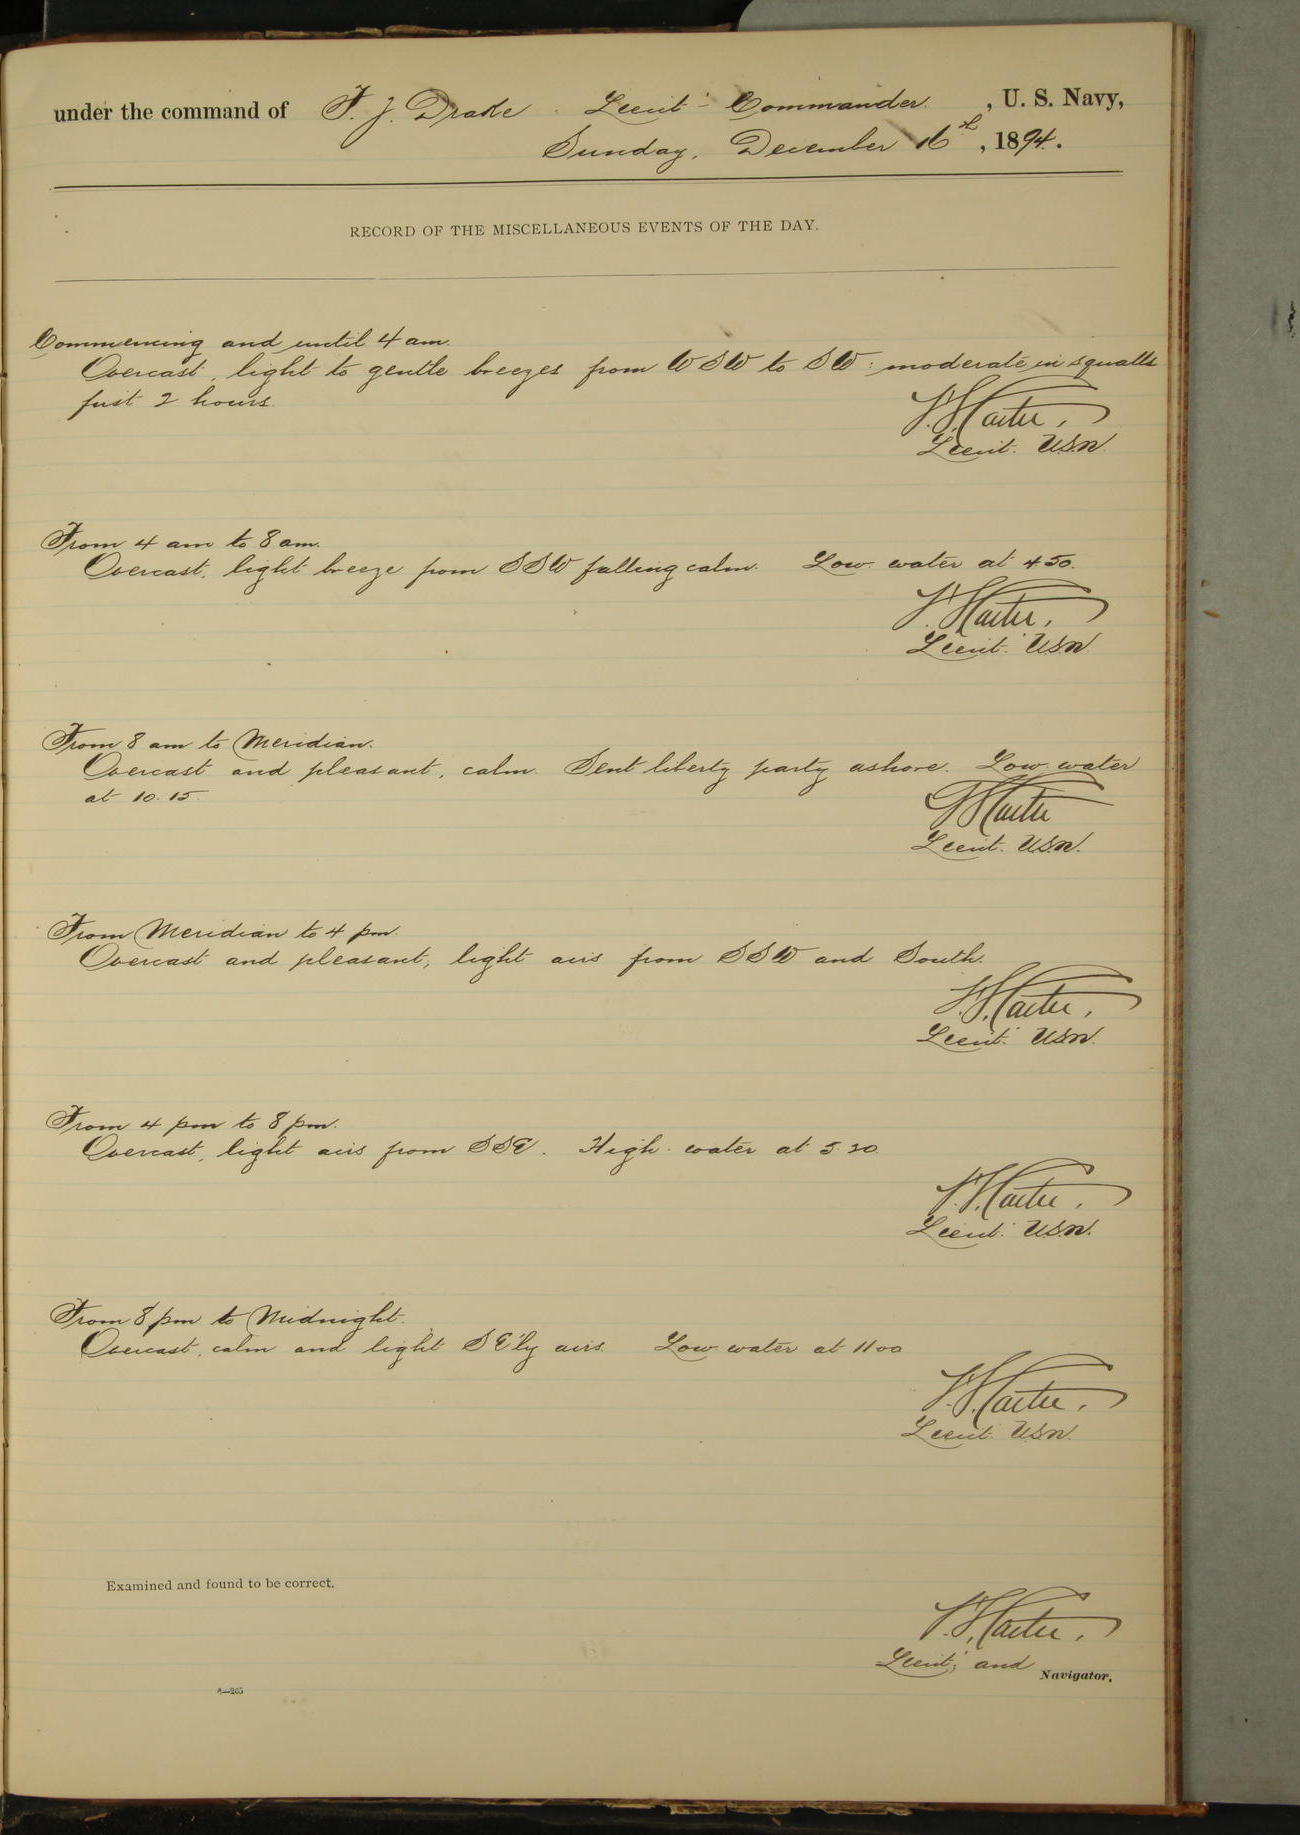 under the command of F. J. Drake Lieut - Commander. , U. S. Navy,
Sunday, December 16th, 1894.
RECORD OF THE MISCELLANEOUS EVENTS OF THE DAY.
Commencing and until 4 am.
Overcast, light to gentle breezes from WSW to SW: moderate in squalls
first 2 hours.
Lieut. U.S.N.
From 4 am to 8 am.
Overcast, light breeze from SSW falling calm. Low water at 4 50.
Lieut. U.S.N
From 8 am to Meridian.
Overcast and pleasant, calm. Sent liberty party ashore. Low water
at 10.15.
Lieut. U.S.N.
From Meridian to 4 pm.
Overcast and pleasant, light airs from SSW and South.
Lieut. U.S.N.
From 4 pm to 8 pm.
Overcast, light airs from SSE. High water at
Lieut. U.S.N.
From 8 pm to Midnight.
Overcast, calm and light SE'ly airs. Low water at 11 00
Lieut. U.S.N.
Examined and found to be correct.
Lieut; and Navigator.